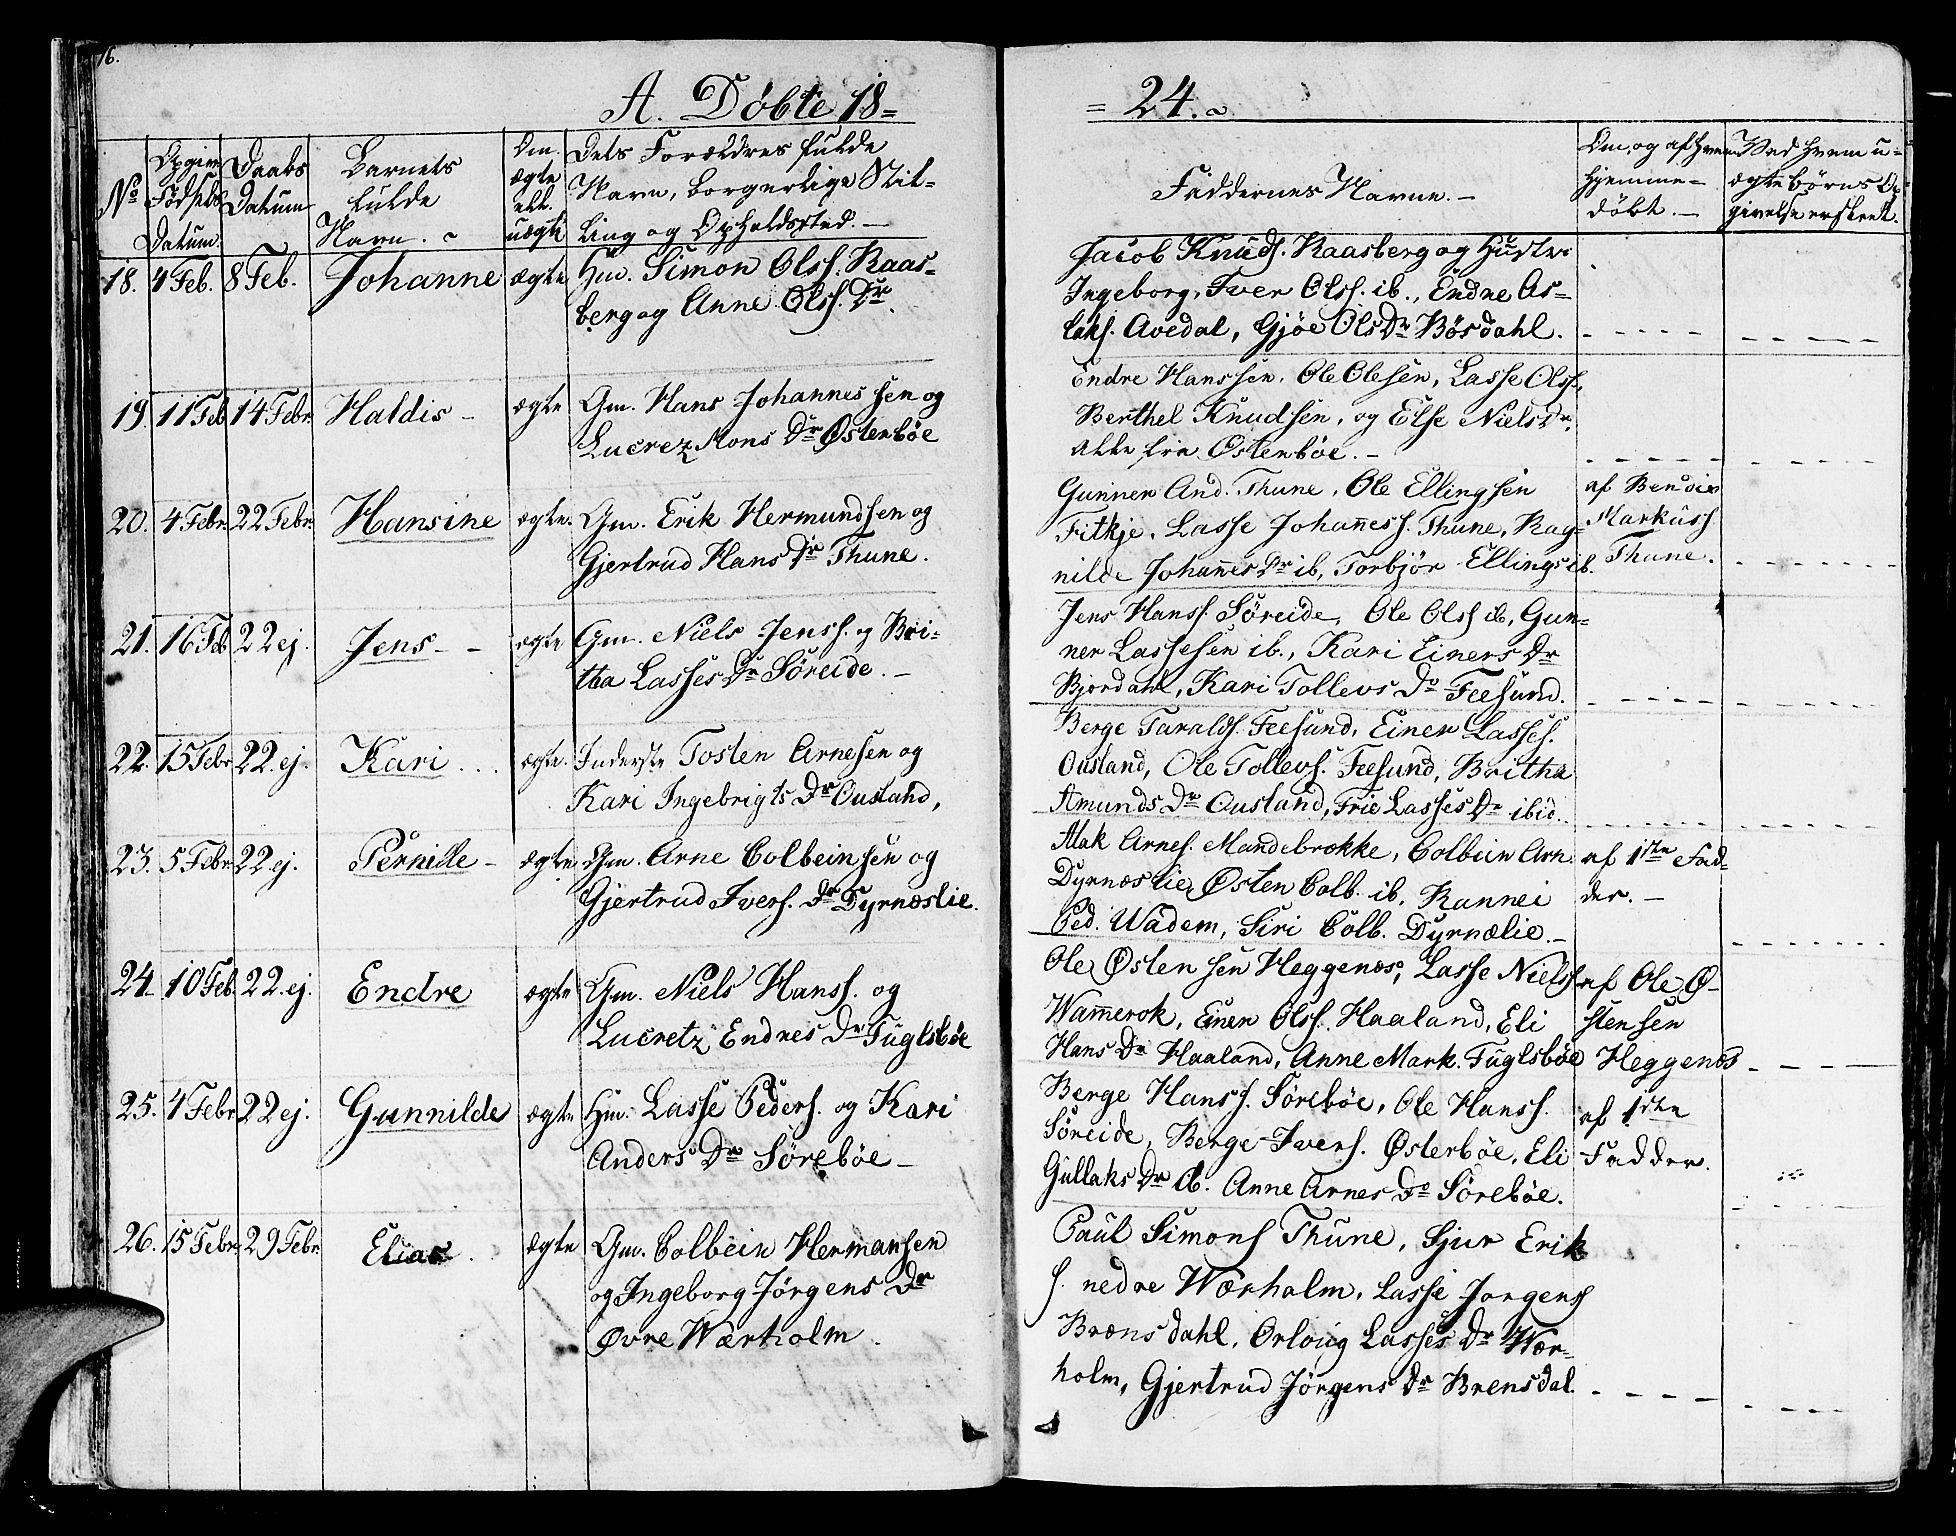 16.
A. Döbte 18=
= 24. ~
No
Opgiv. Födsels Datum.
Daabs Datum
Barnets fulde Navn. ~
Om. ægte ell. uægte
Dets Forældres fulde
Navn, borgerlige Stil-
ling og Opholdssted. —
Faddernes Navne. —
Om, og af hvem
hjemme-
döbt. —
Ved hvem u-
ægte börns Op-
givelse er skeet.
18. 4 Feb. 8 Feb. Johanne ægte Hm. Simon Olss. Raas-
berg og Anne Olss. Dr.
Jacob Knuds. Raasberg og Hustr.
Ingeborg, Iver Olss. ib., Endre As-
laks. Avedal, Gjöe Ols Dr Bösdahl.
19. 11 Feb 14 Febr. Haldis - ægte Gm. Hans Johannessen og
Lucrez Mons Dr Østenböe
Endre Hanssen, Ole Olesen, Lasse Olss.,
Berthel Knudsen, og Else Niels Dr,
alle fra Østenböe. -
20. 4 Febr. 22 Febr. Hansine ægte. Gm. Erik Hermundsen og
Gjertrud Hans Dr Thune.
Gunner And. Thune, Ole Ellingsen
Fitkje, Lasse Johanness. Thune, Rag-
nilde Johannes Dr ib, Torbjör Ellings ib.
af
Markuss
Thune.
21. 16 Feb 22 ej. Jens - - ægte Gm. Niels Jenss. og Bri-
tha Lasses Dr Söreide. -
Jens Hanss. Söreide, Ole Olss ib, Gun-
ner Lassesen ib., Kari Einers Dr
Bjordahl, Kari Tollevs Dr Feesund.
22. 15 Febr 22. ej. Kari . . . ægte. Inderste Tosten Arnesen og
Kari Ingebrigts Dr Ousland,
Berge Taralds. Feesund, Einer Lasses.
Ousland, Ole Tollevs. Feesund, Britha
Amunds Dr Ousland, Frie Lasses Dr ibid.
23. 5 Febr 22 ej. Pernille - ægte Gm. Arne Colbeinsen og
Gjertrud Ivers. Dr Dyrnæslie.
Alak Arnes. Mandebrokke, Colbein Arn.
Dyrnæslie, Østen Colb. ib, Rannei
Ped. Wadem, Siri Colb. Dyrnælie. -
af 1ste Fad-
der. -
24. 10 Feb. 22. ej. Endre ægte Gm. Niels Hanss. og
Lucretz Endres Dr Fuglsböe
Ole Østensen Heggenæs, Lasse Nielss
Wamerok, Einer Olss. Haaland, Eli
Hans Dr Haaland, Anne Mark. Fuglsböe
af Ole Ø-
stensen
Heggenæs
25. 4 Febr 22 ej. Gunnilde ægte Hm. Lasse Peders. og Kari
Anders Dr Söreböe -
Berge Hanss. Söreböe, Ole Hanss.
Söreide, Berge Ivers. Østerböe, Eli
Gullaks Dr ib. Anne Arnes Dr Söreböe.
af 1ste
Fadder.
26. 15 Febr. 29 Febr. Elias . ægte Gm. Colbein Hermansen
og Ingeborg Jörgens Dr
Øvre Wærholm.
Paul Simons Thune, Sjur Erik
s. nedre Wærholm, Lasse Jorgens
Brænsdahl, Orloug Lasses Dr Wær-
holm, Gjertrud Jörgens Dr Brensdal.